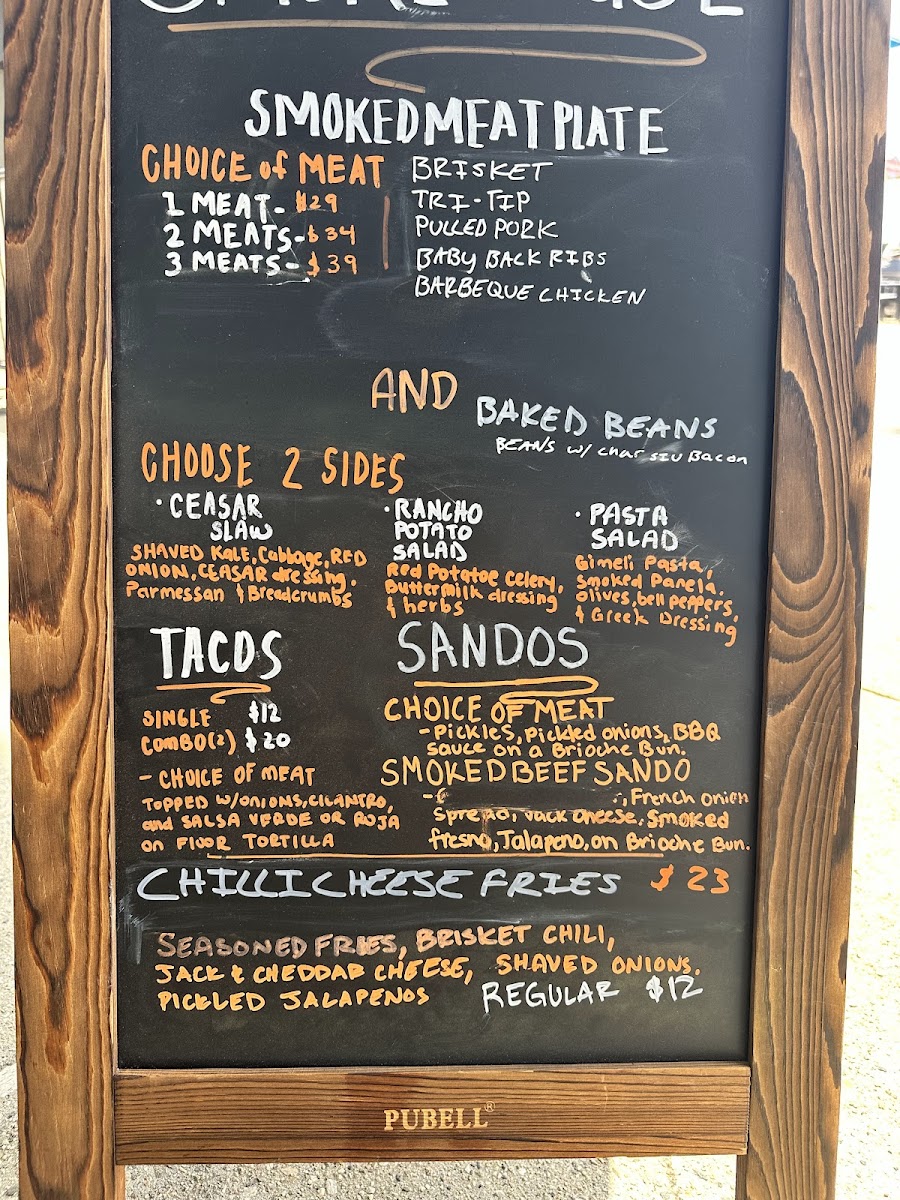 SMOKED MEAT PLATE
CHOICE of MEAT
1 MEAT- $29
2 MEATS- $34
3 MEATS- $39
BRISKET
TRI-TIP
PULLED PORK
BABY BACK RIBS
BARBEQUE CHICKEN
AND
BAKED BEANS
BEANS w/ char siu Bacon
CHOOSE 2 SIDES
• CEASAR
SLAW
SHAVED KALE, Cabbage, RED
ONION, CEASAR dressing,
Parmessan & Breadcrumbs
• RANCHO
POTATO
SALAD
Red Potatoe Celery,
Buttermilk dressing
& herbs
• PASTA
SALAD
Gimeli Pasta,
Smoked Panela,
Olives, bell peppers,
& Greek Dressing
TACOS
SINGLE $12
COMBO(2) $20
- CHOICE OF MEAT
TOPPED W/ONIONS, CILANTRO,
and SALSA VERDE OR ROJA
on FLOOR TORTILLA
SANDOS
CHOICE OF MEAT
- Pickles, Pickled onions, BBQ
Sauce on a Brioche Bun.
SMOKED BEEF SANDO
- French onion
Spread, Jack Cheese, Smoked
fresno, Jalapeno, on Brioche Bun.
CHILLI CHEESE FRIES $23
SEASONED FRIES, BRISKET CHILI,
JACK & CHEDDAR CHEESE, SHAVED ONIONS,
PICKLED JALAPENOS
REGULAR $12
PUBELL®